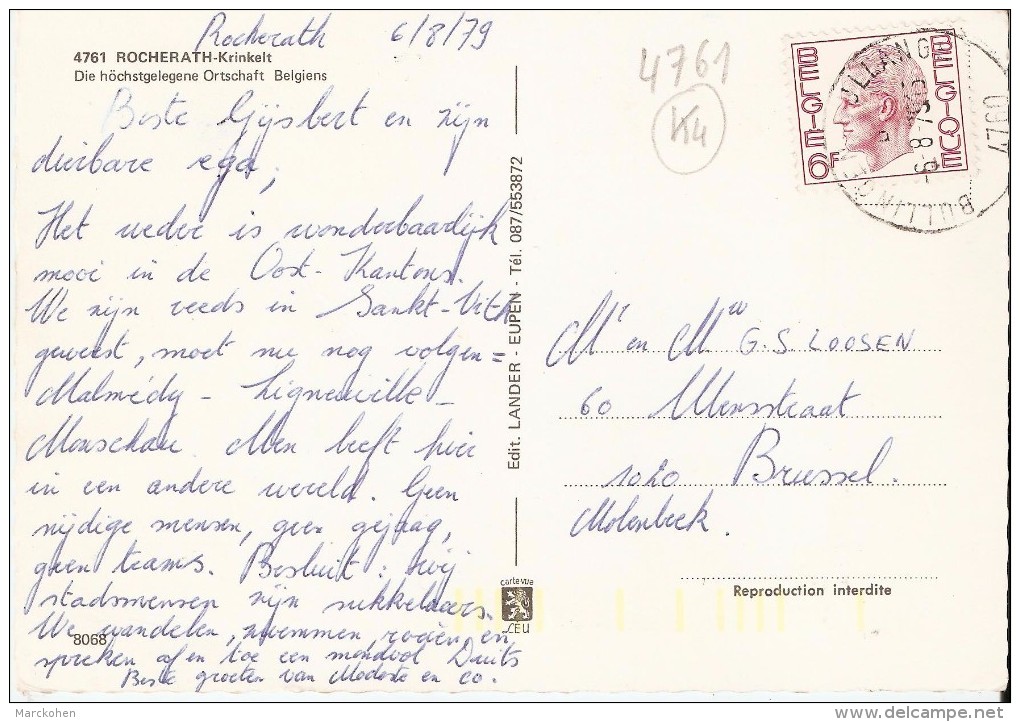 Rocherath 6/8/79
4761 ROCHERATH-Krinkelt
Die höchstgelegene Ortschaft Belgiens
Beste Gijsbert en zijn
dierbare ega,
Het weder is wonderbaarlijk
mooi in de Oost-Kantons.
We zijn reeds in Sankt-Vith
geweest, moet nu nog volgen =
Malmédy - Ligneuville -
Monschau. Men leeft hier
in een andere wereld. Geen
nijdige mensen, geen gejaag,
geen trams. Besluit: wij
stadsmensen zijn sukkelaars.
We wandelen, zwemmen, roeien en
spreken af en toe een mondvol Duits
Beste groeten van Modeste en co.
8068
Edit. LANDER - EUPEN - Tél. 087/553872
carte vue
CÉU
4761
K4
BELGIE
BELGIQUE
6F
BULLANGE
BULLINGEN
4760
-6-8-79
Mr en Mw G.S LOOSEN
60 Ulensstraat
1020 Brussel.
Molenbeek.
Reproduction interdite
Marckohen